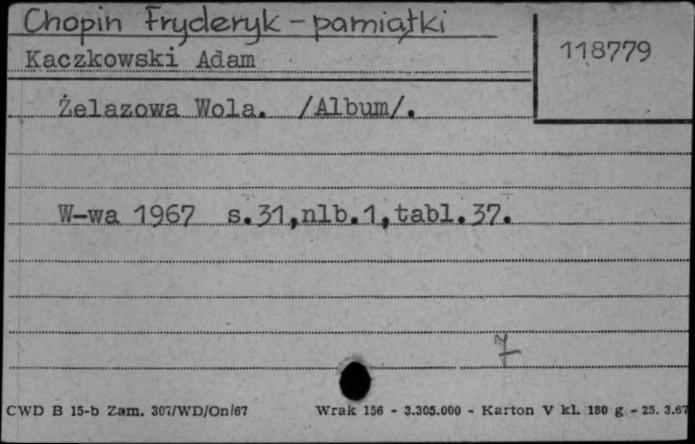 Chopin Fryderyk - pamiątki
Kaczkowski Adam
118779
Żelazowa Wola. /Album/.
W-wa 1967 s.31,nlb.1,tabl.37.
7
CWD B 15-b Zam. 307/WD/On/67 Wrak 156 - 3.305.000 - Karton V kl. 180 g - 25. 3.67